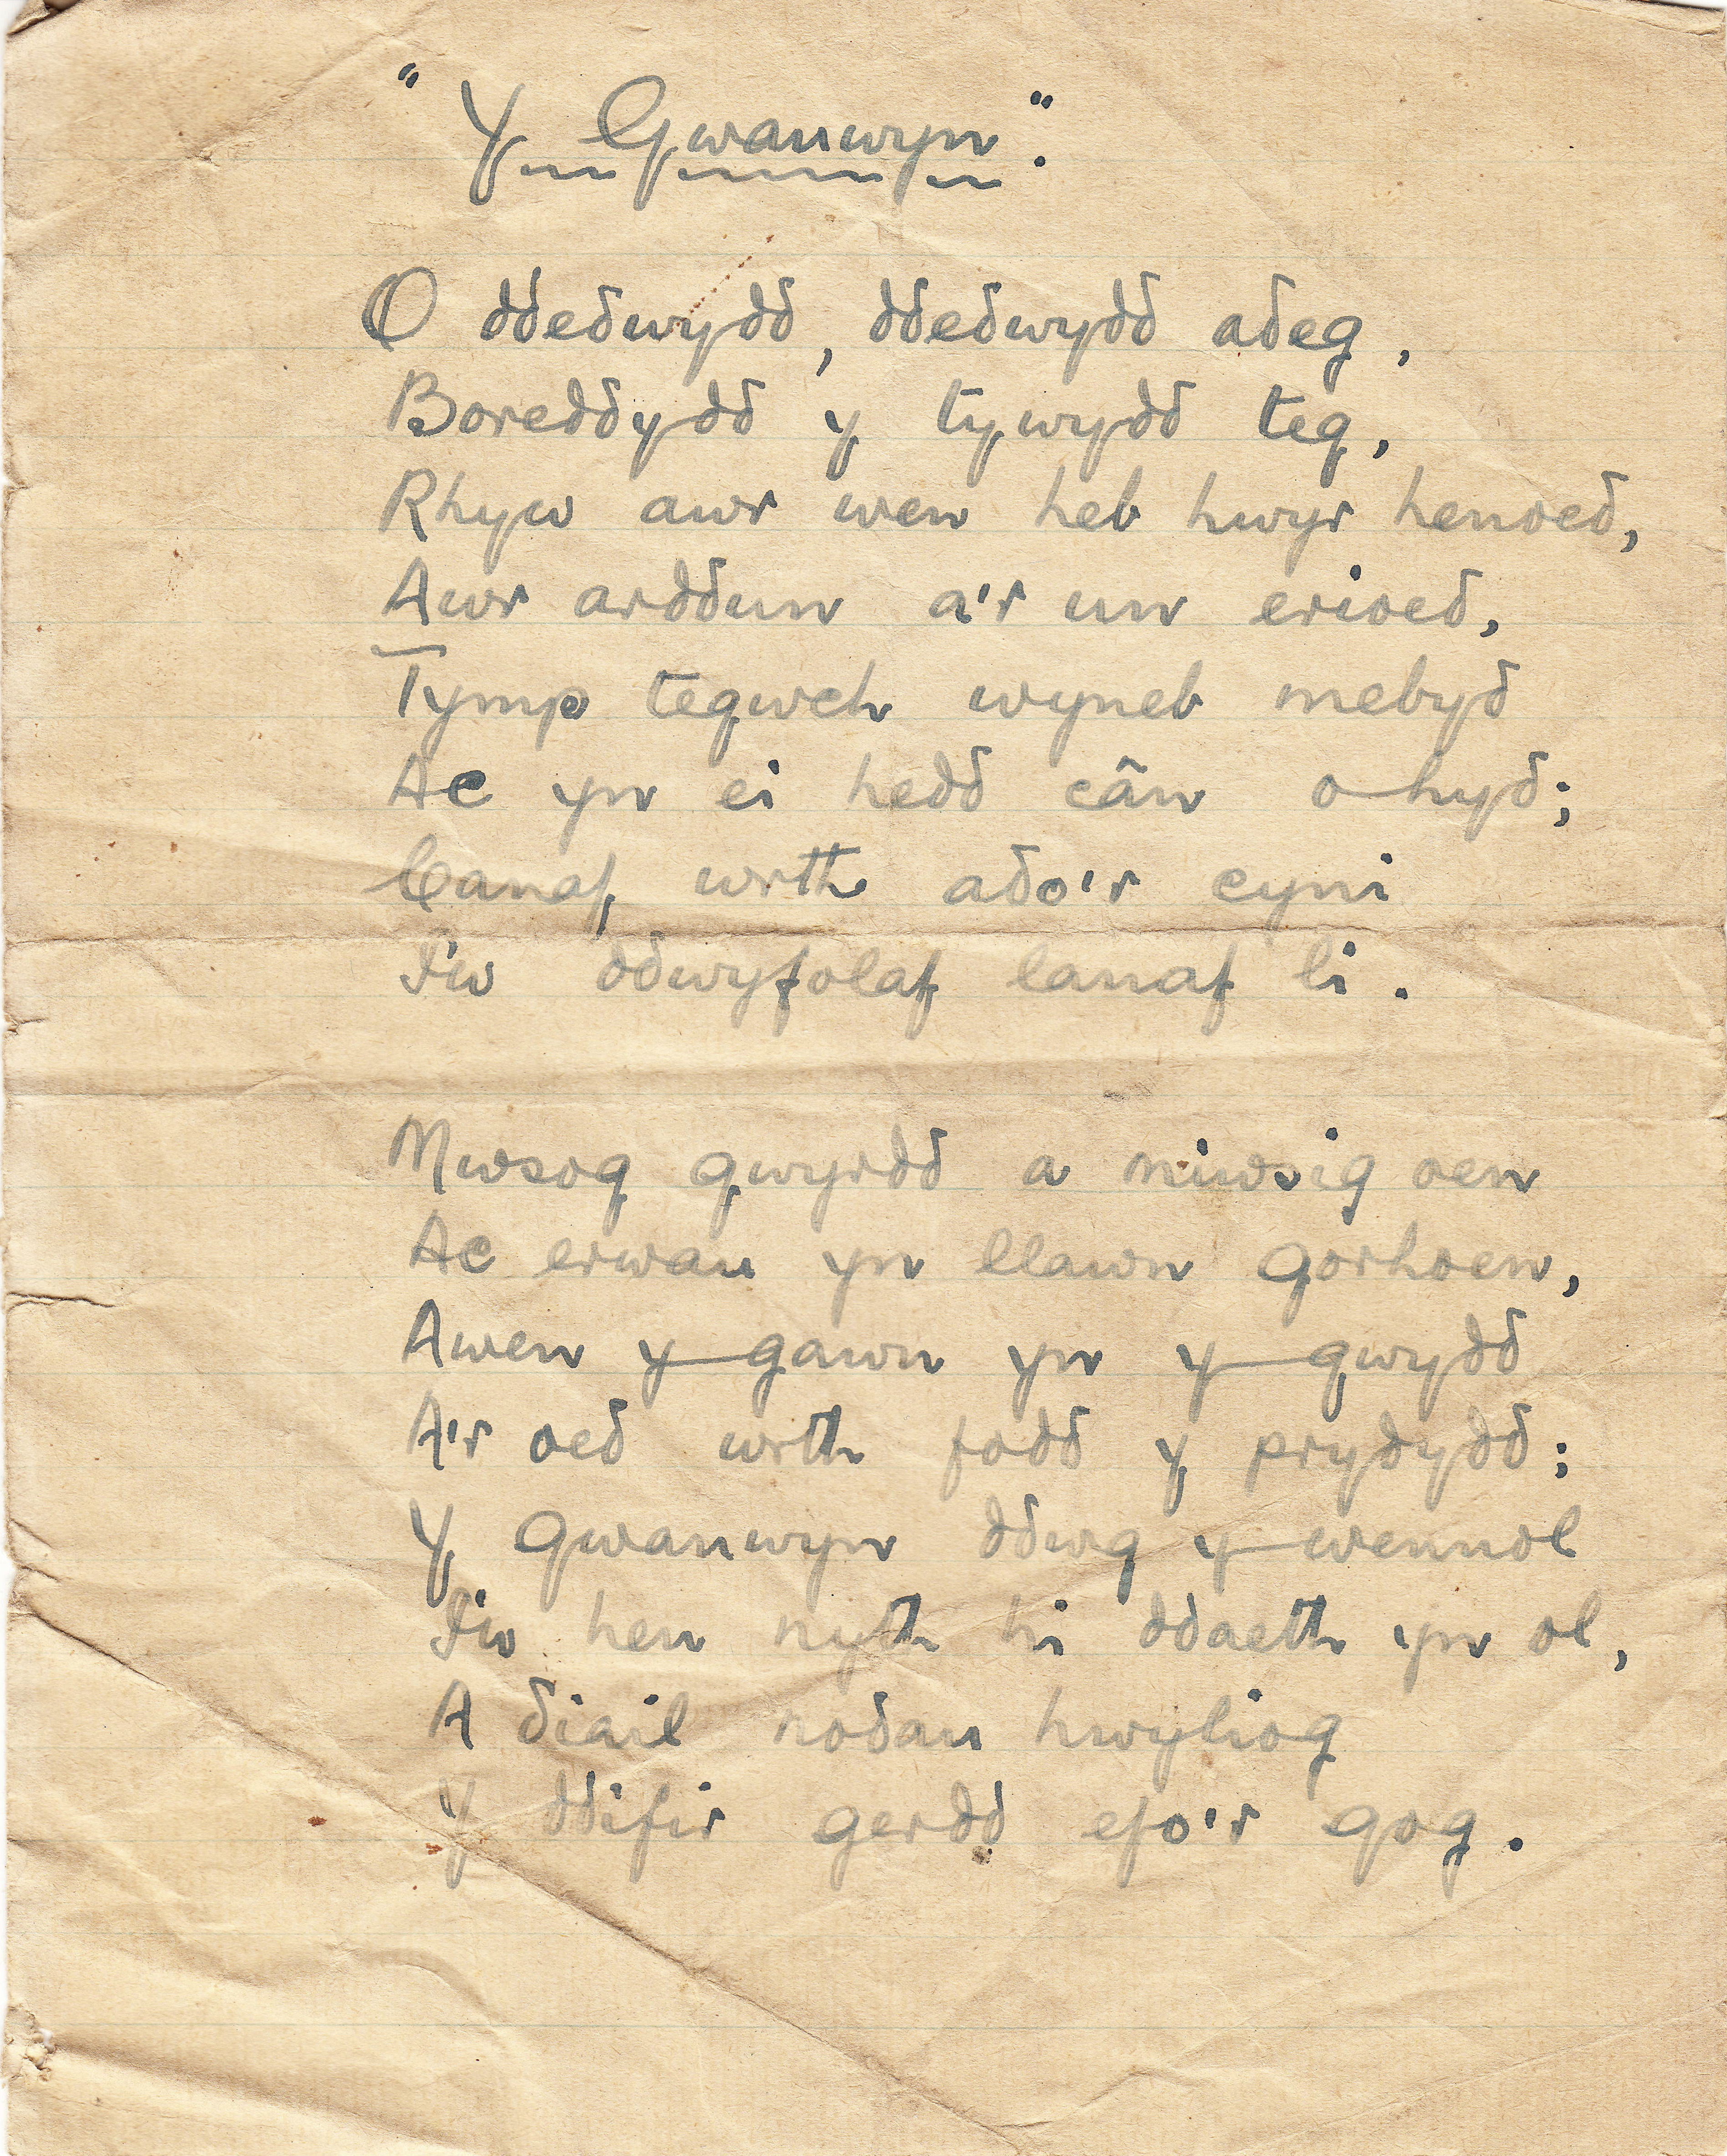 "Y Gwanwyn".
O ddedwydd, ddedwydd adeg,
Boreddydd y tywydd teg,
Rhyw awr wen heb hwyr henoed,
Awr arddun a'r un erioed,
Tymp tegwch wyneb mebyd
Ac yn ei hedd cân o hyd;
Canaf, wrth ado'r cyni
I'w ddwyfolaf lanaf li.
Mwsog gwyrdd a miwsig oen
Ac erwau yn llawn gorhoen,
Awen y gawn yn y gwydd
A'r oed wrth fodd y prydydd;
Y Gwanwyn ddwg y wennol
I'w hen nyth hi ddaeth yn ol,
A diail nodau hwyliog
Y ddifir gerdd efo'r gog.